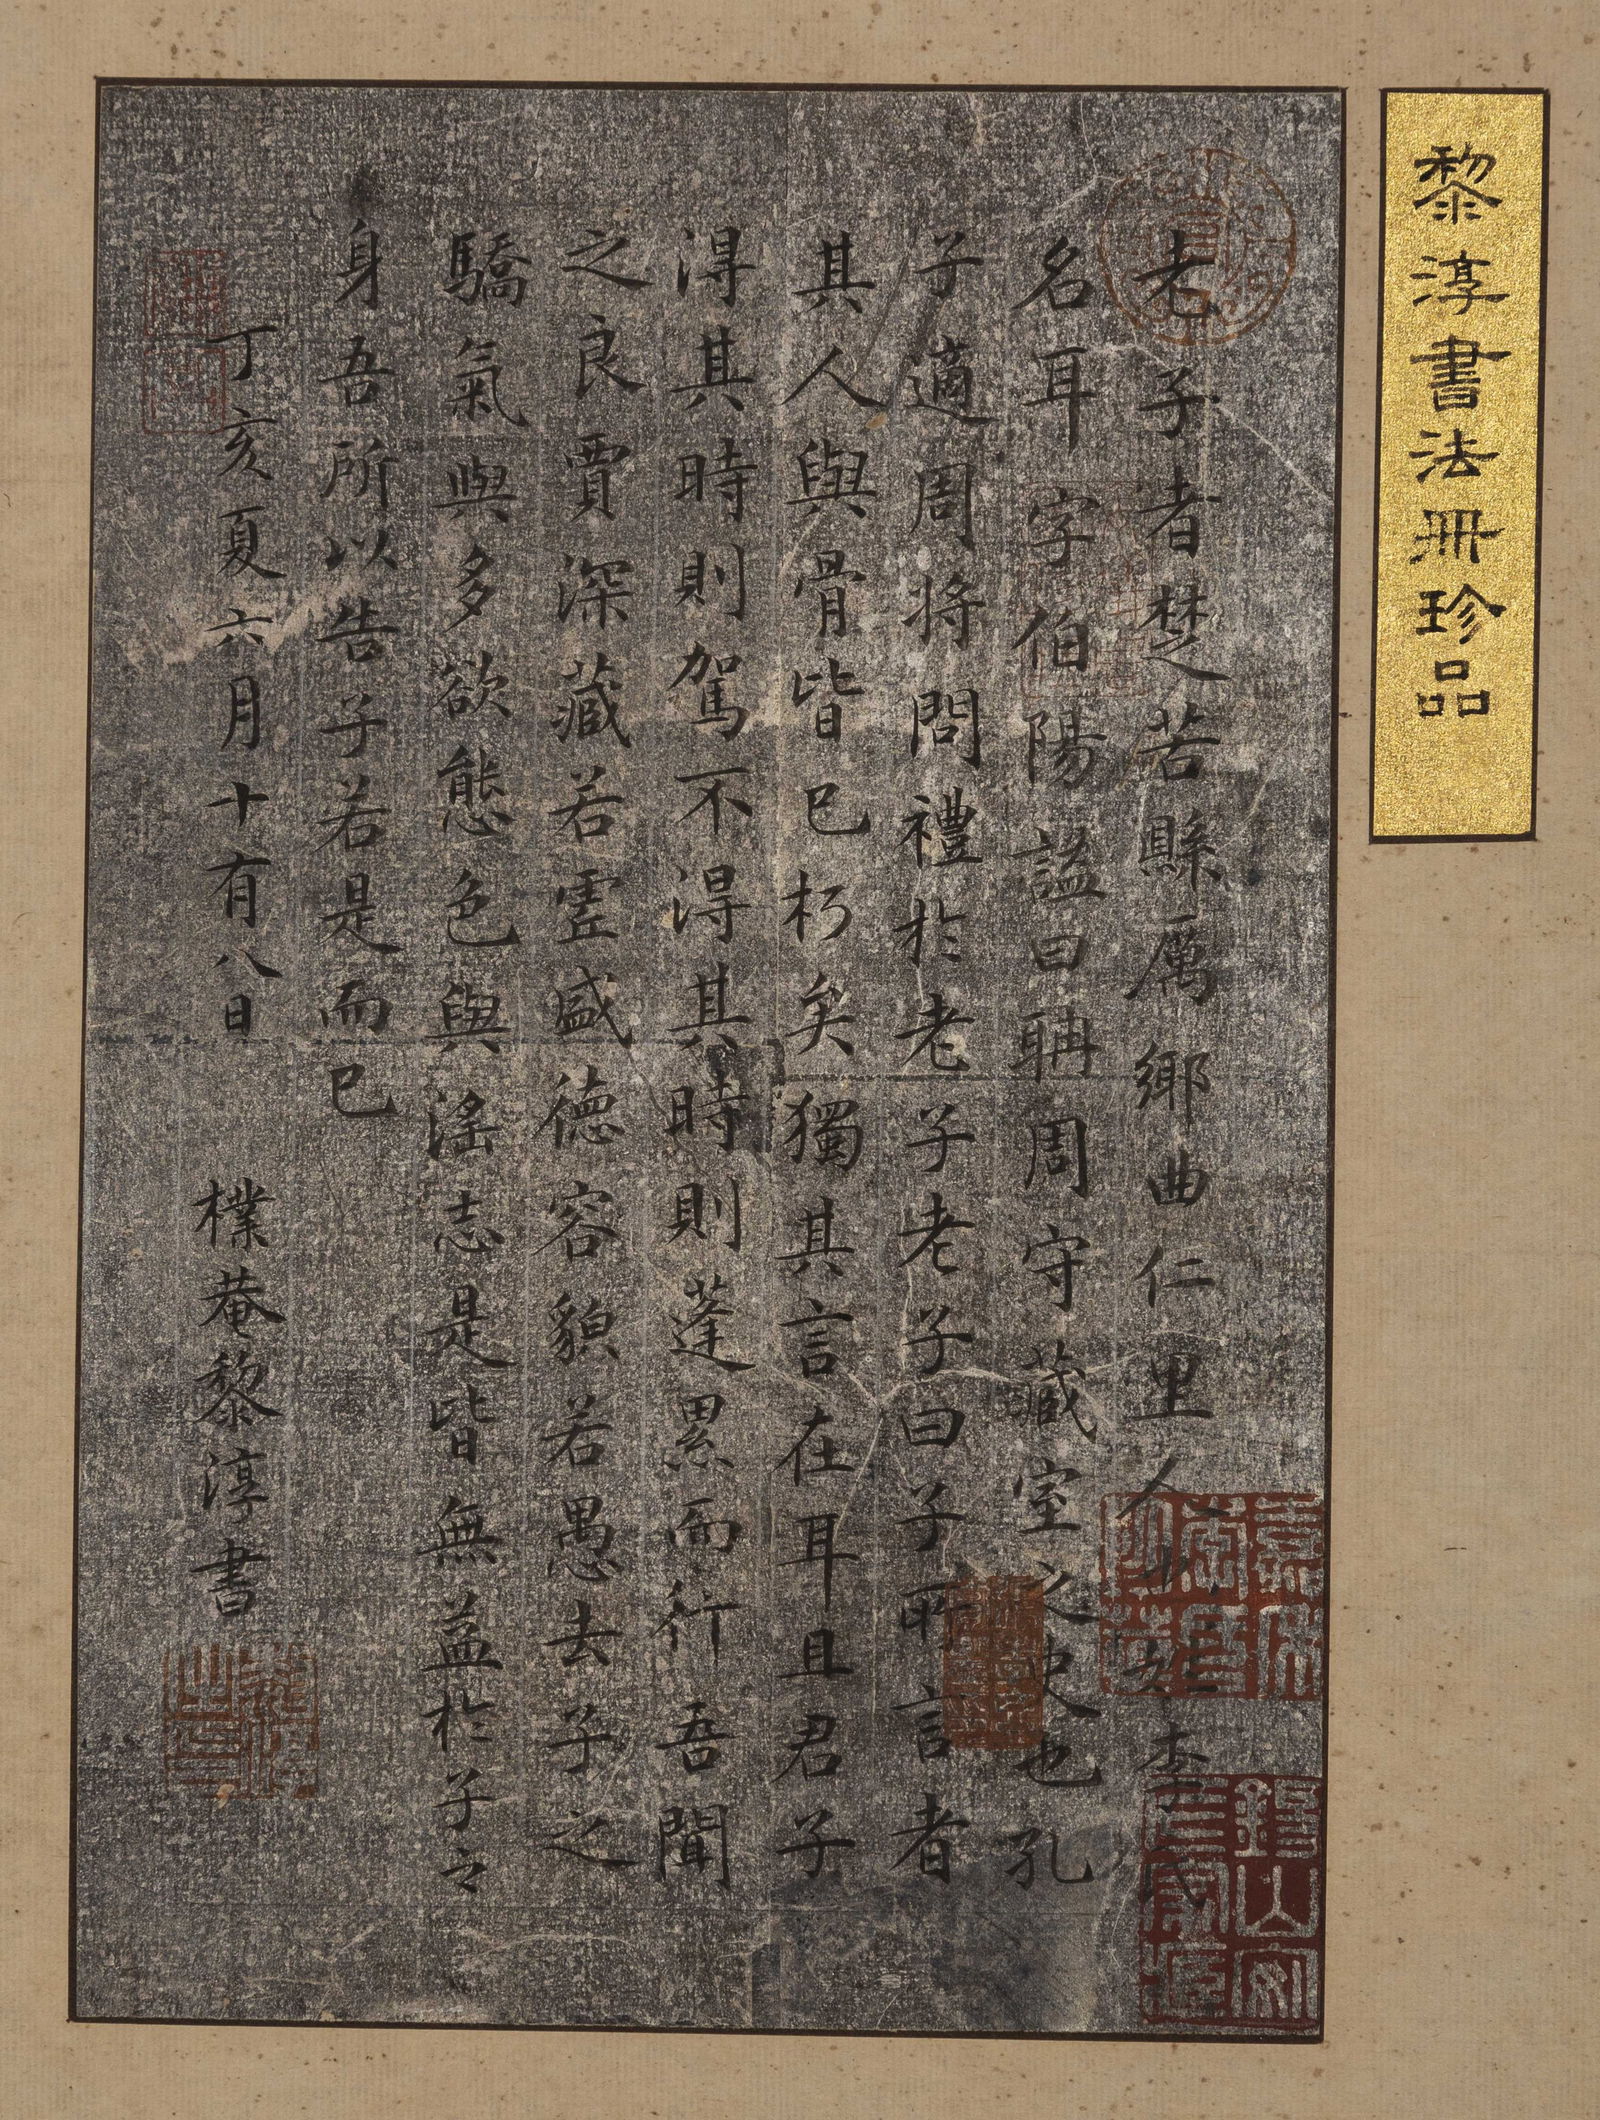 黎淳書法冊珍品
老子者楚苦縣厲鄉曲仁里人也姓李氏
名耳字伯陽謚曰聃周守藏室之史也孔
子適周將問禮於老子老子曰子所言者
其人與骨皆已朽矣獨其言在耳且君子
得其時則駕不得其時則蓬累而行吾聞
之良賈深藏若虛盛德容貌若愚去子之
驕氣與多欲態色與淫志是皆無益於子之
身吾所以告子若是而已
丁亥夏六月十有八日 樸菴黎淳書